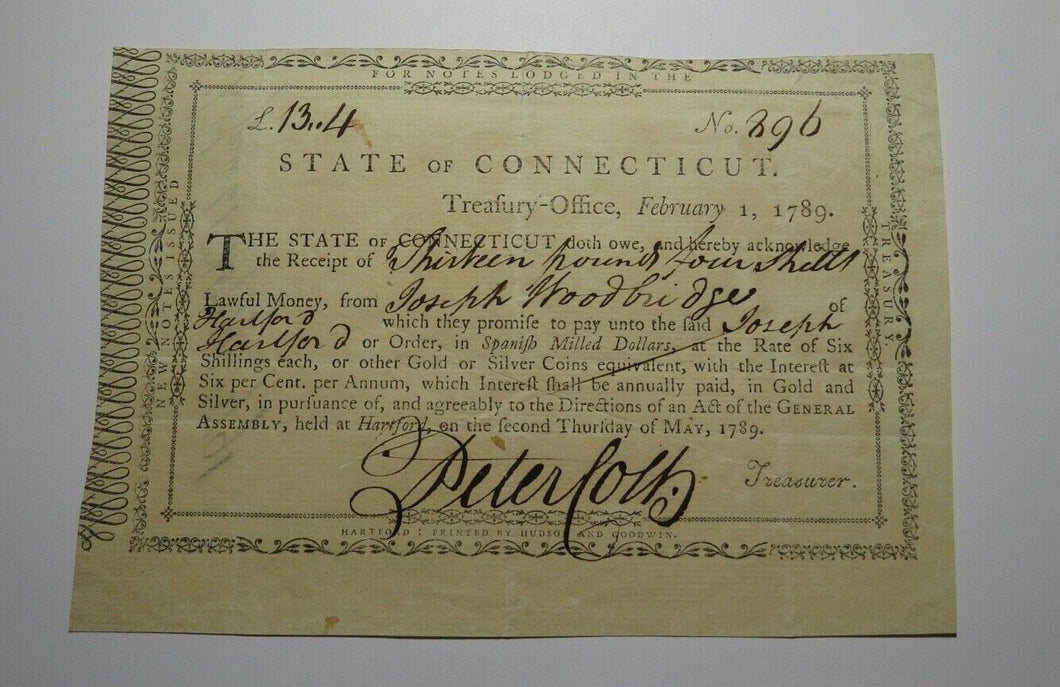 FOR NOTES LODGED IN THE
NEW NOTES ISSUED
TREASURY
£.13,,4 No. 896
STATE OF CONNECTICUT.
Treaſury-Office, February 1, 1789.
THE STATE OF CONNECTICUT doth owe, and hereby acknowledge
the Receipt of Thirteen pounds four Shills
Lawful Money, from Joseph Woodbridge of
Hartford which they promiſe to pay unto the ſaid Joseph
Hartford or Order, in Spaniſh Milled Dollars, at the Rate of Six
Shillings each, or other Gold or Silver Coins equivalent, with the Intereſt at
Six per Cent. per Annum, which Intereſt ſhall be annually paid, in Gold and
Silver, in purſuance of, and agreeably to the Directions of an Act of the GENERAL
ASSEMBLY, held at Hartford, on the ſecond Thurſday of MAY, 1789.
Peter Colt Treasurer.
HARTFORD: PRINTED BY HUDSON AND GOODWIN.